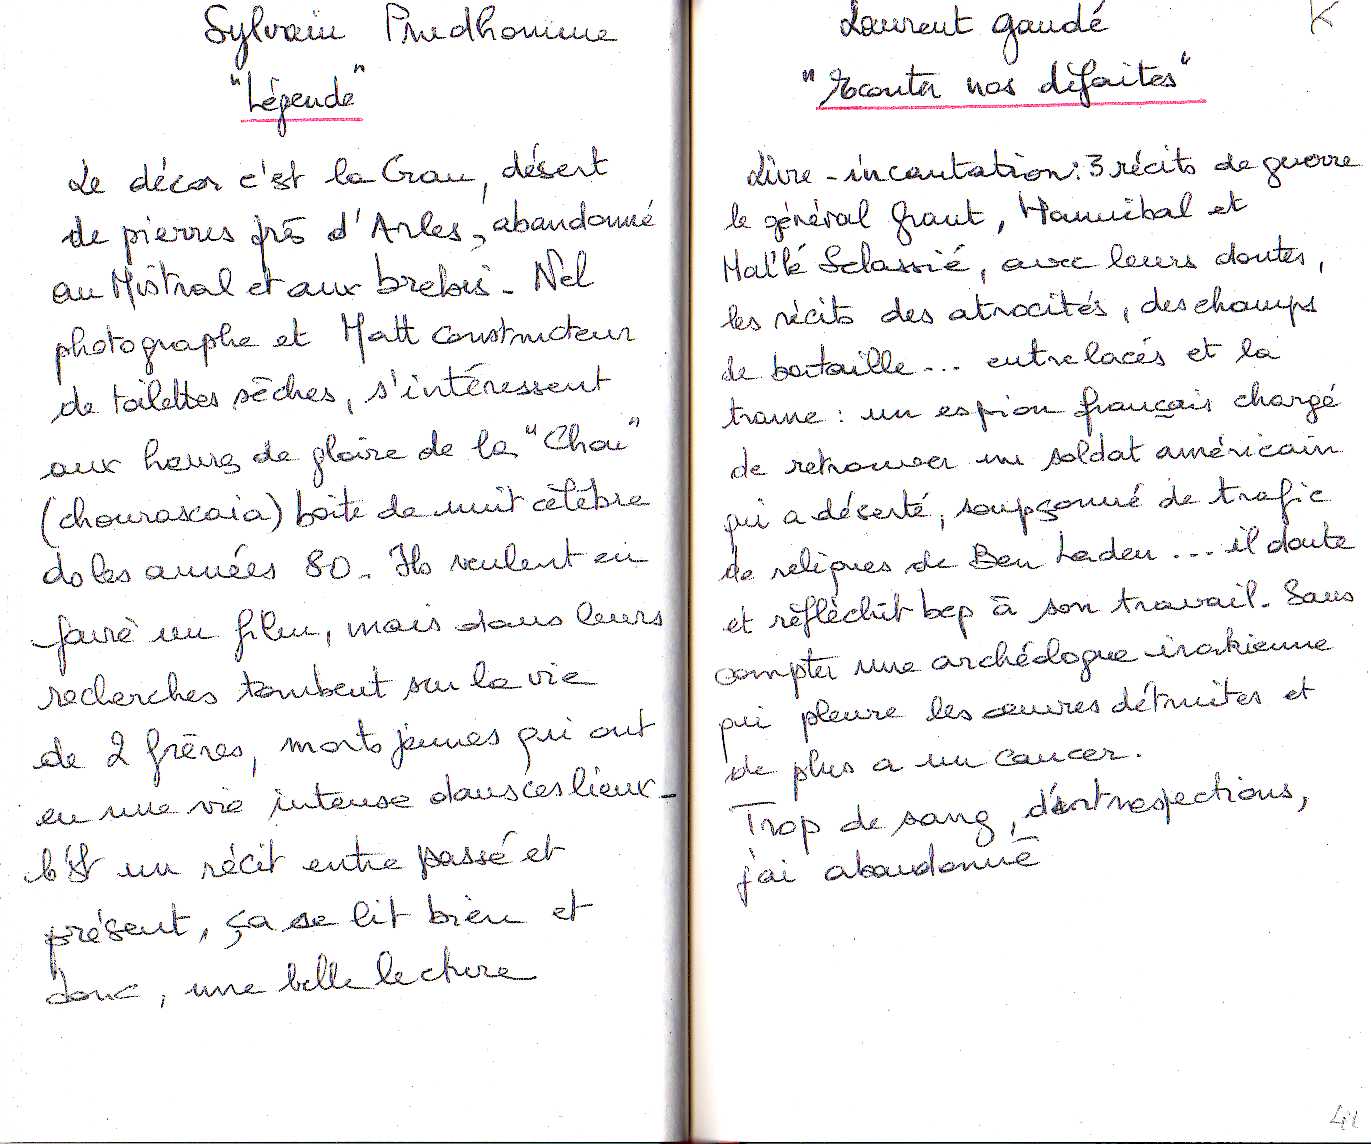 Sylvain Prudhomme
"Légende"
Le décor c'est la Crau, désert
de pierres près d'Arles, abandonné
au Mistral et aux brebis - Nel
photographe et Matt constructeur
de toilettes sèches, s'intéressent
aux heures de gloire de la "Chou"
(chourascaia) boîte de nuit célèbre
ds les années 80 - Ils veulent en
faire un film, mais dans leurs
recherches tombent sur la vie
de 2 frères, morts jeunes qui ont
eu une vie intense dans ces lieux -
C'est un récit entre passé et
présent, ça se lit bien et
donc, une belle lecture
Laurent Gaudé
K
"Ecouter nos défaites"
Livre - incantation : 3 récits de guerre
le général Grant, Hannibal et
Haïlé Sélassié, avec leurs doutes,
les récits des atrocités, des champs
de bataille ... entrelacés et la
trame : un espion français chargé
de retrouver un soldat américain
qui a déserté, soupçonné de trafic
de reliques de Ben Laden ... il doute
et réfléchit bcp à son travail. Sans
compter une archéologue irakienne
qui pleure les œuvres détruites et
de plus a un cancer.
Trop de sang, d'introspections,
j'ai abandonné